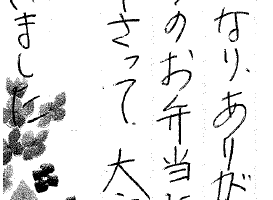 なり、ありが
のお弁当に
さって、大
いました